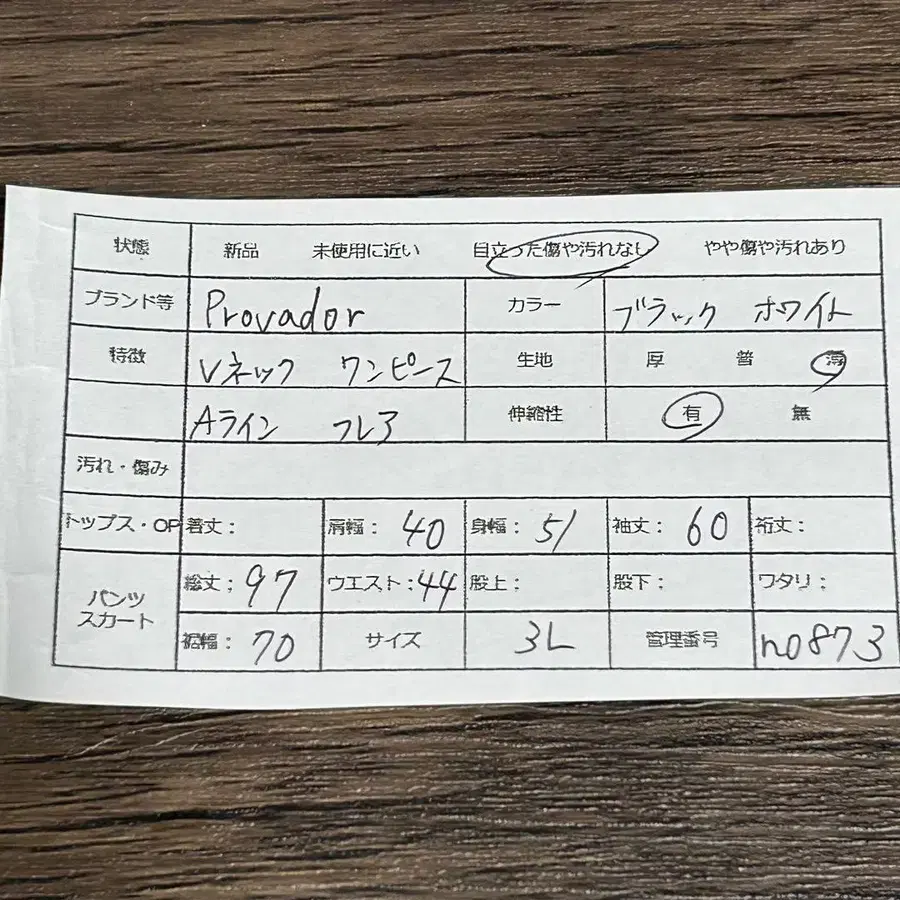 状態 新品 未使用に近い 目立った傷や汚れなし やや傷や汚れあり
ブランド等 Provador カラー ブラック ホワイト
特徴 Vネック ワンピース 生地 厚 普 薄
Aライン フレア 伸縮性 有 無
汚れ・傷み
トップス・OP 着丈: 肩幅: 40 身幅: 51 袖丈: 60 裄丈:
パンツ スカート 総丈: 97 ウエスト: 44 股上: 股下: ワタリ:
裾幅: 70 サイズ 3L 管理番号 no873